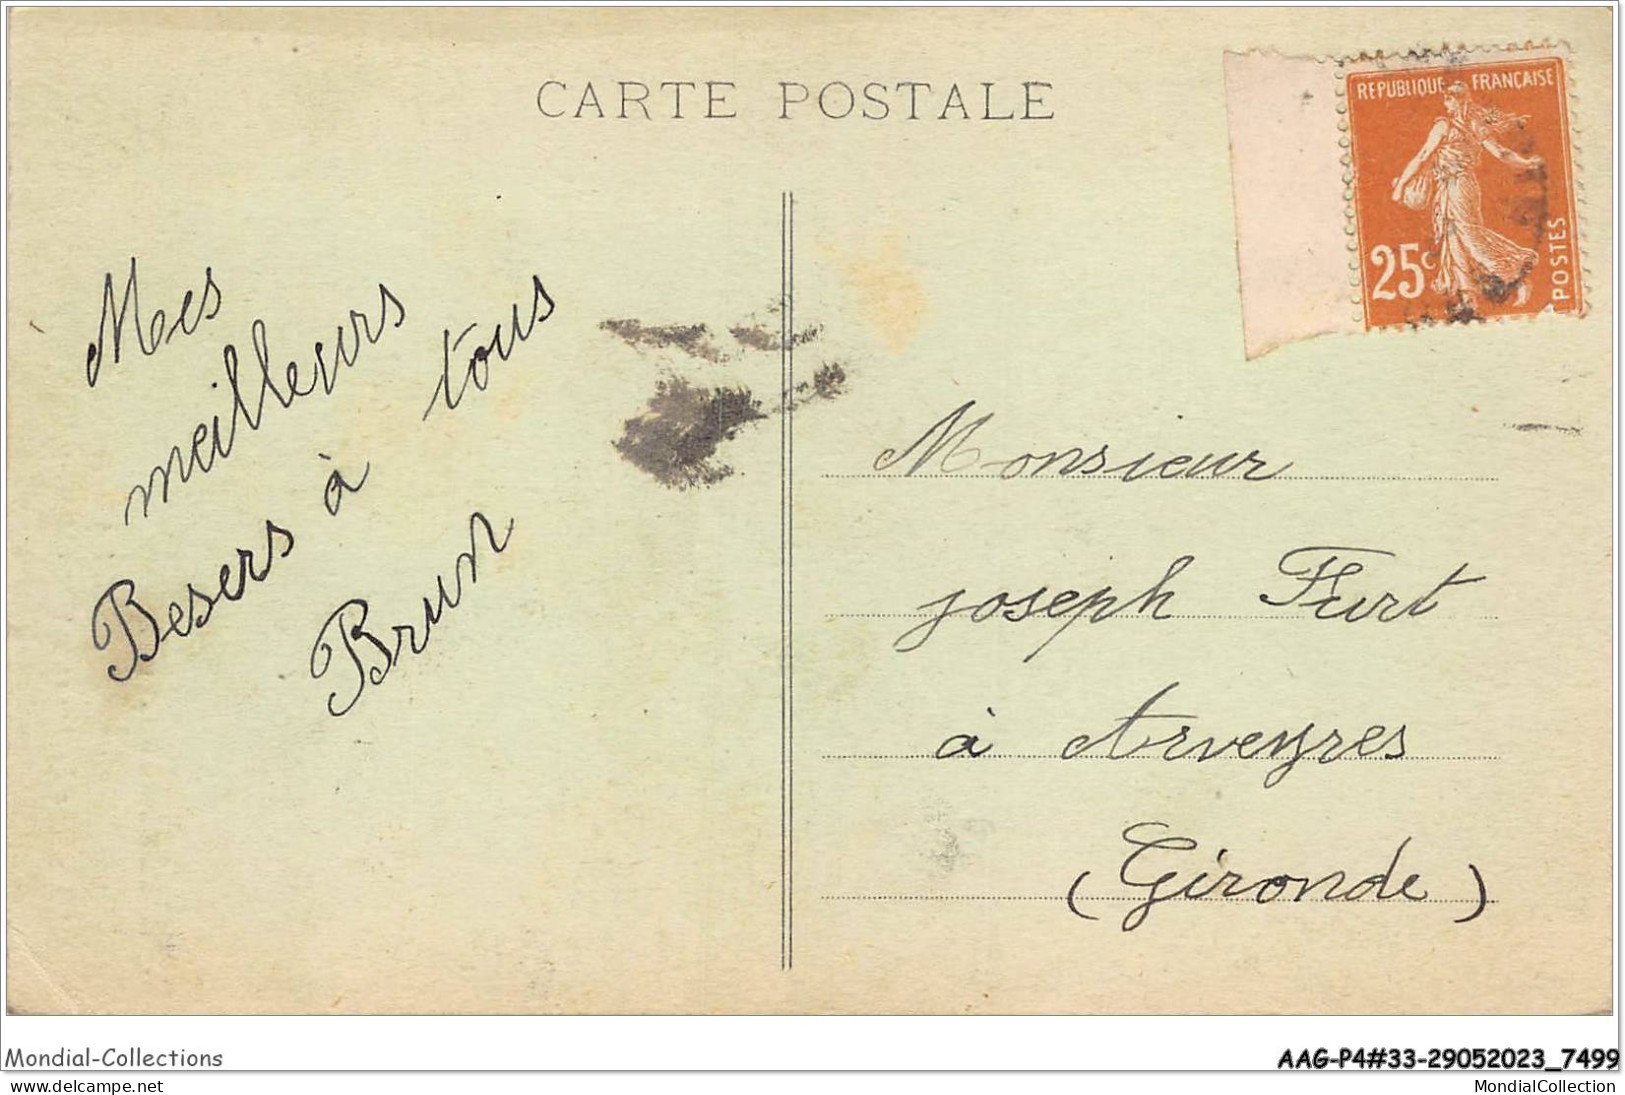 CARTE POSTALE
REPUBLIQUE FRANÇAISE
25c
POSTES
Mes
meilleurs
Besers à tous
Brun
Monsieur
joseph Furt
à Arveyres
(Gironde)
Mondial-Collections
AAG-P4#33-29052023_7499
www.delcampe.net
MondialCollection